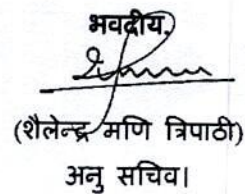 भवदीय,
(शैलेन्द्र मणि त्रिपाठी)
अनु सचिव।